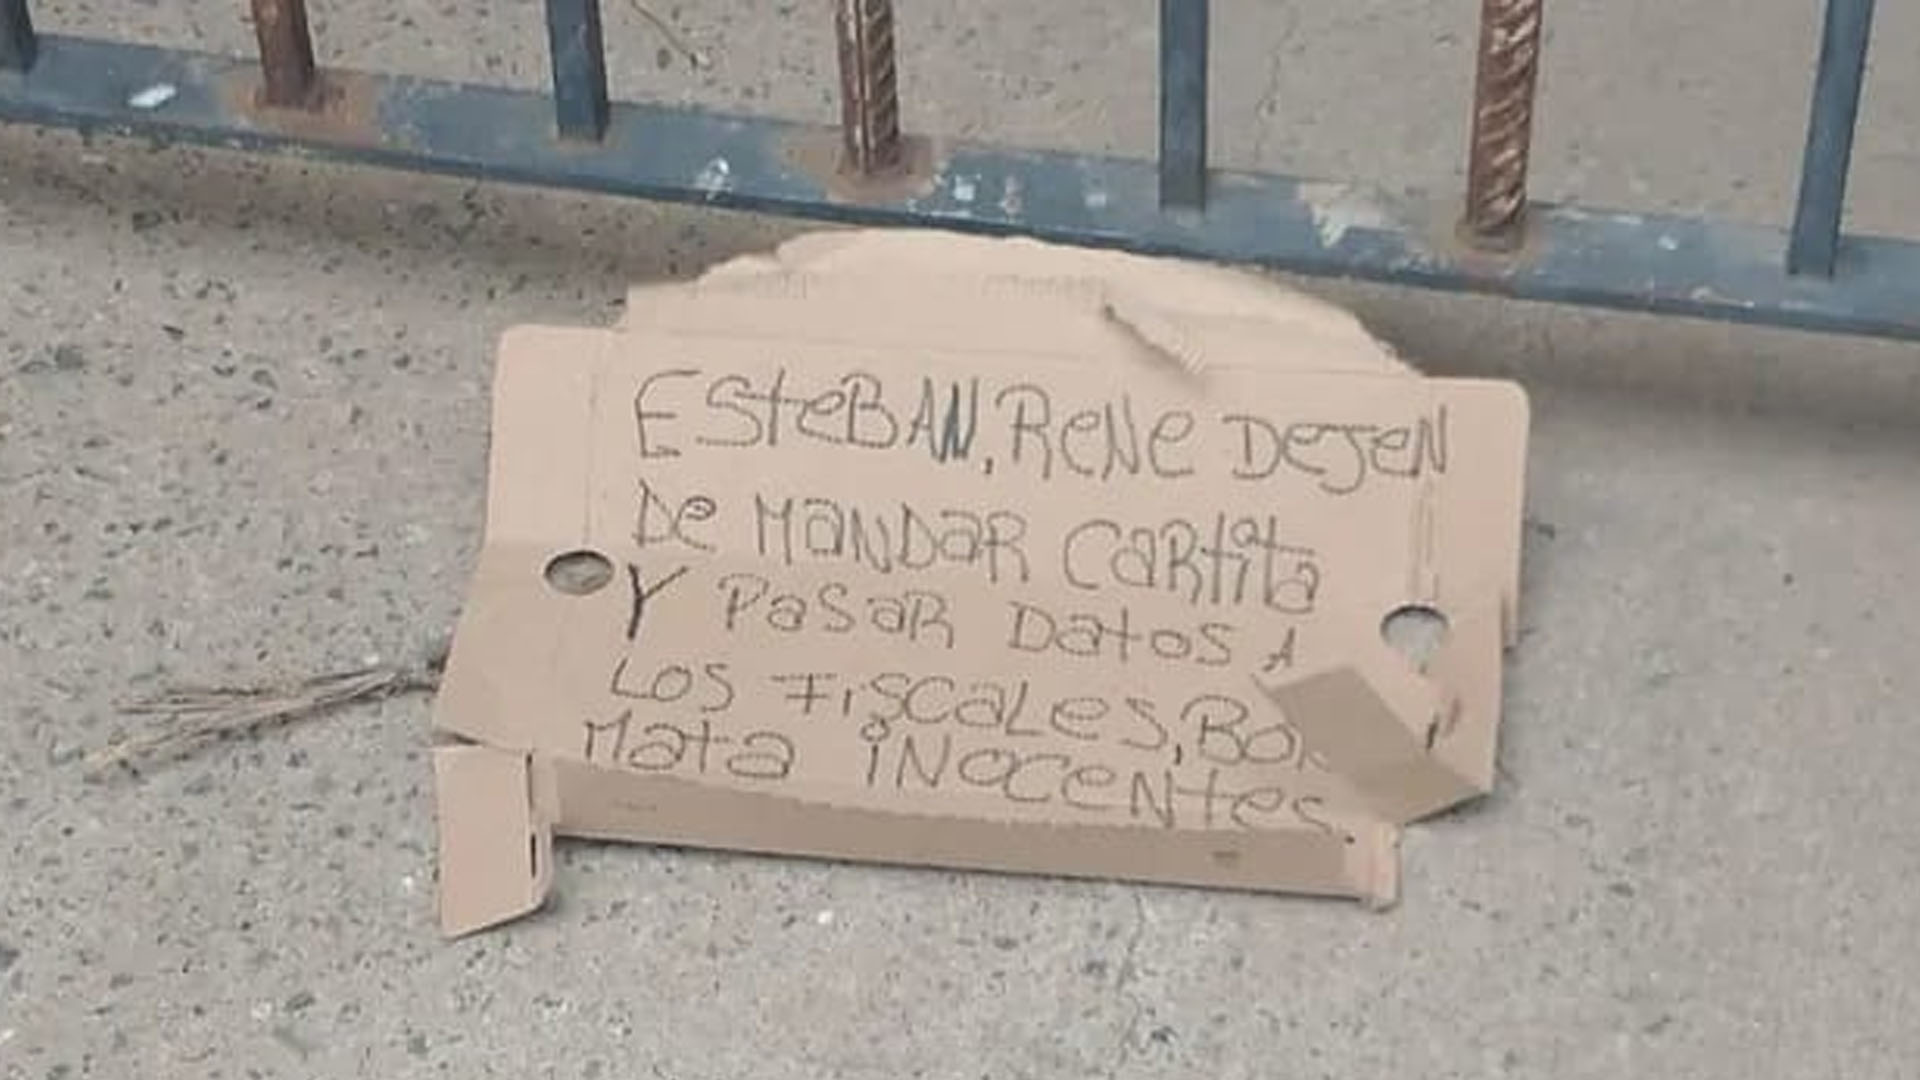 ESteBAN, ReNe DeJeN
De MaNDaR CaRtita
Y PaSaR Datos A
Los FiscaLes,
Mata iNoceNtes.